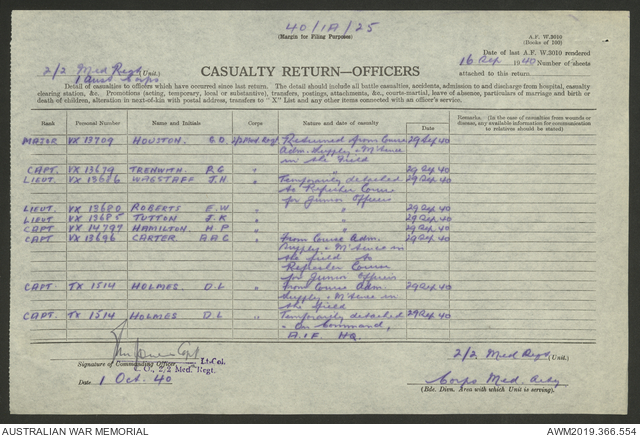 40/1A/25
(Margin for Filing Purposes)
A.F. W.3010
(Books of 100)
Date of last A.F. W.3010 rendered
16 Sep 1940 Number of sheets
attached to this return.
2/2 Med Regt (Unit.)
1 Aust Corps
CASUALTY RETURN—OFFICERS
Detail of casualties to officers which have occurred since last return. The detail should include all battle casualties, accidents, admission to and discharge from hospital, casualty
clearing station, &c. Promotions (acting, temporary, local or substantive), transfers, postings, attachments, &c., courts-martial, leave of absence, particulars of marriages and birth or
death of children, alteration in next-of-kin with postal address, transfers to "X" List and any other items connected with an officer's service.
Rank Personal Number Name Corps Nature and date of casualty Date Remarks. (In the case of casualties from wounds or disease, any available information for communication to relatives should be stated)
MAJOR VX 13709 HOUSTON. G.D. 2/2 Med. Regt. Returned from Course 29 Sep 40
Adm. Supply & M'tence
in the Field
CAPT. VX 13679 TRENWITH R.G " " 29 Sep 40
LIEUT. VX 13686 WAGSTAFF J.H " Temporarily detached 29 Sep 40
to Refresher Course
for Junior Officers
LIEUT. VX 13680 ROBERTS E.W " " 29 Sep 40
LIEUT. VX 13685 TUTTON J.K " " 29 Sep 40
CAPT VX 14797 HAMILTON H.P " " 29 Sep 40
CAPT VX 13696 CARTER. " From Course Adm. 29 Sep 40
Supply & M'tence in
the field to
Refresher Course
for Junior Officers
CAPT. TX 1514 HOLMES. D.L " From Course Adm. 29 Sep 40
Supply & M'tence in
the field
CAPT. TX 1514 HOLMES D.L " Temporarily detached 29 Sep 40
On Command,
A.I.F HQ.
Signature of Commanding Officer Lt-Col.
C.O. 2/2 Med. Regt.
Date 1 Oct. 40
2/2 Med Regt (Unit.)
Corps Med Arty
(Bde. Divn. Area with which Unit is serving).
AUSTRALIAN WAR MEMORIAL
AWM2019.366.554